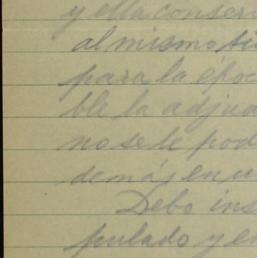 y ella conser
al mismo ti
para la époc
ble la adjud
no se le pod
demás, en u
Debo ins
pulado y en